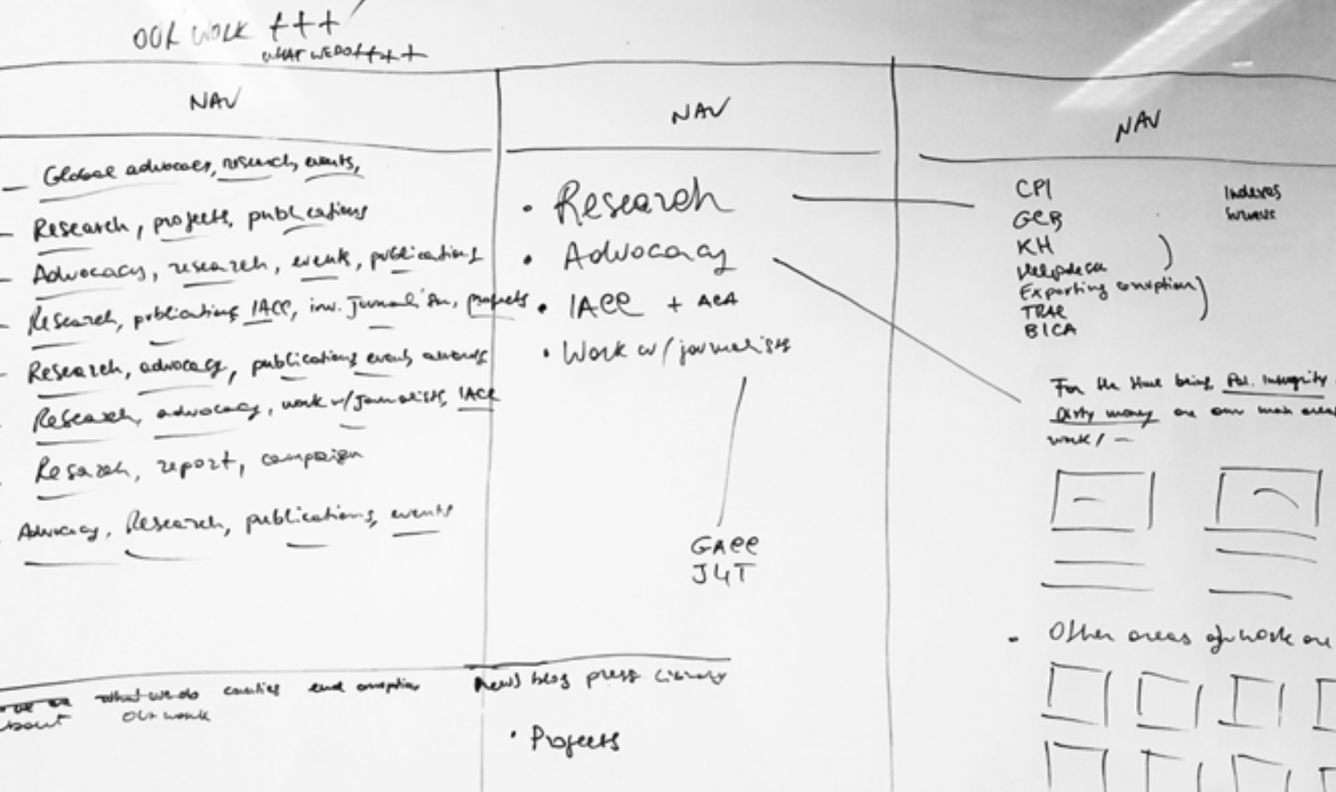 OUR WORK +++
WHAT WE DO ++++
NAV
– Global advocacy, research, events,
– Research, projects, publications
– Advocacy, research, events, publications
– Research, publications, IACC, inv. journalism, projects
– Research, advocacy, publications, events, awards
Research, advocacy, work w/journalists, IACC
Research, report, campaign
Advocacy, Research, publications, events
what we do countries end corruption
About our work
NAV
• Research
• Advocacy
• IACC + ACA
• Work w/journalists
GACC
J4T
News blog press Library
• Projects
NAV
CPI
GCB
KH
Helpdesk
Exporting corruption
TRAC
BICA
Indexes
For the time being, Pol. Integrity
Dirty money are our main areas
work/ –
• Other areas of work are